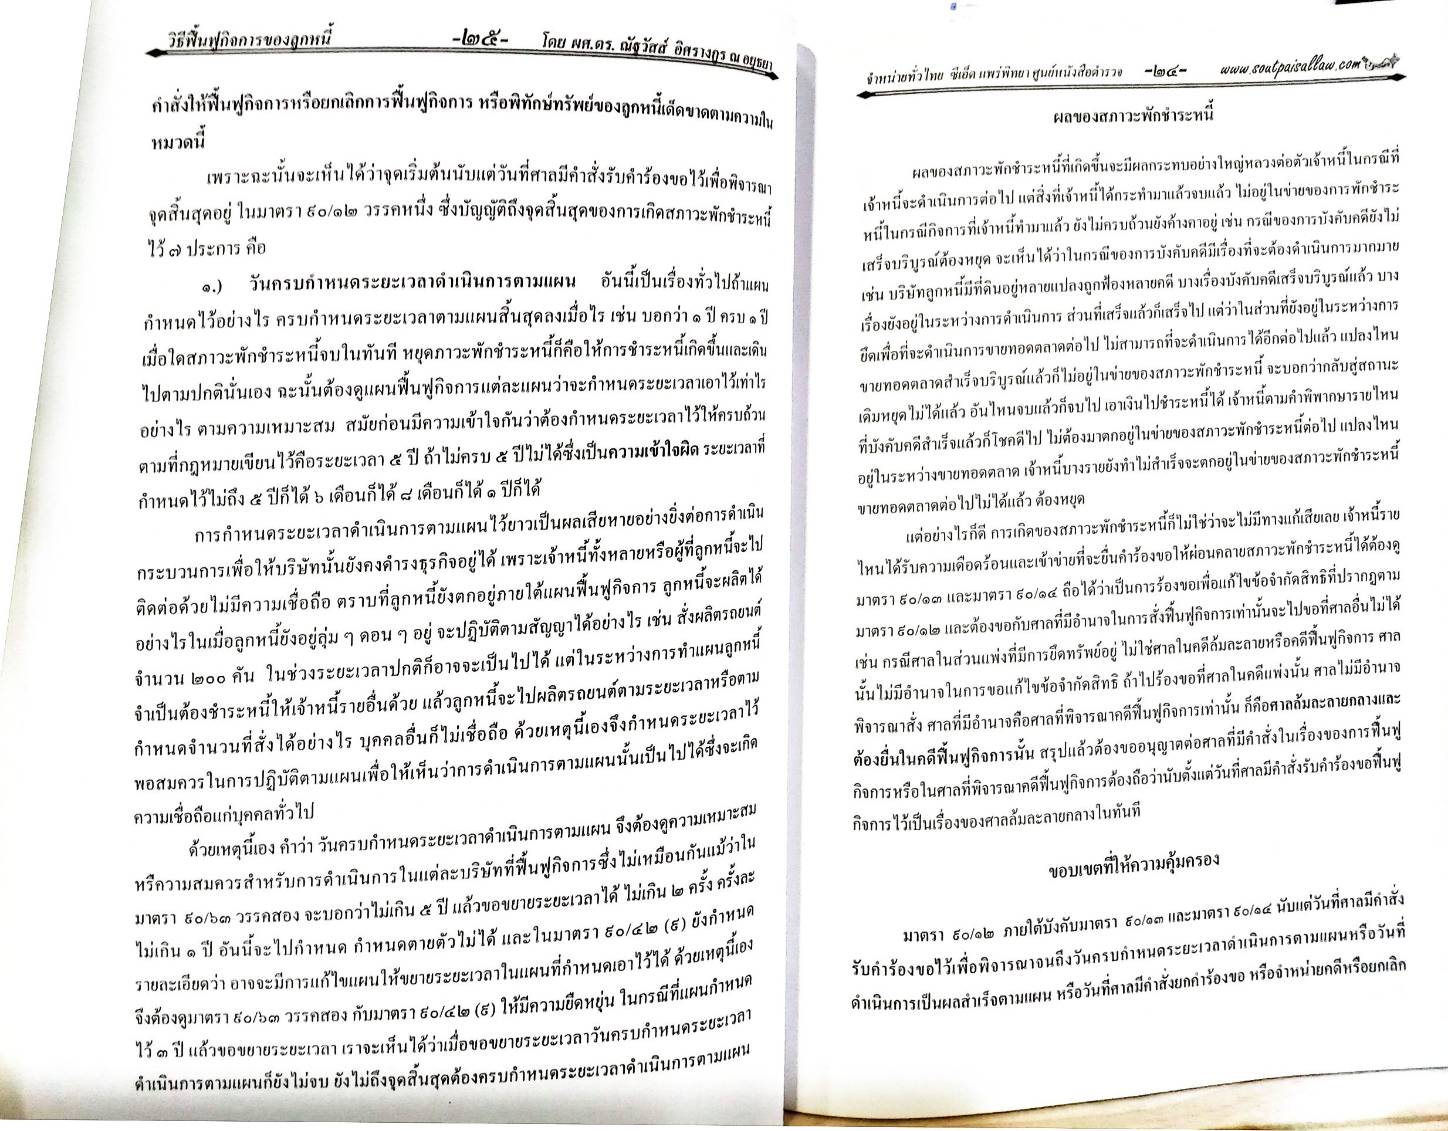 วิธีฟื้นฟูกิจการของลูกหนี้ -๒๕- โดย ผศ.ดร. ณัฐวัสส์ อิศรางกูร ณ อยุธยา
คำสั่งให้ฟื้นฟูกิจการหรือยกเลิกการฟื้นฟูกิจการ หรือพิทักษ์ทรัพย์ของลูกหนี้เด็ดขาดตามความใน
หมวดนี้
เพราะฉะนั้นจะเห็นได้ว่าจุดเริ่มต้นนับแต่วันที่ศาลมีคำสั่งรับคำร้องขอไว้เพื่อพิจารณา
จุดสิ้นสุดอยู่ ในมาตรา ๙๐/๑๒ วรรคหนึ่ง ซึ่งบัญญัติถึงจุดสิ้นสุดของการเกิดสภาวะพักชำระหนี้
ไว้ ๗ ประการ คือ
๑.) วันครบกำหนดระยะเวลาดำเนินการตามแผน อันนี้เป็นเรื่องทั่วไปถ้าแผน
กำหนดไว้อย่างไร ครบกำหนดระยะเวลาตามแผนสิ้นสุดลงเมื่อไร เช่น บอกว่า ๑ ปี ครบ ๑ ปี
เมื่อใดสภาวะพักชำระหนี้จบในทันที หยุดภาวะพักชำระหนี้ก็คือให้การชำระหนี้เกิดขึ้นและเดิน
ไปตามปกตินั่นเอง ฉะนั้นต้องดูแผนฟื้นฟูกิจการแต่ละแผนว่าจะกำหนดระยะเวลาเอาไว้เท่าไร
อย่างไร ตามความเหมาะสม สมัยก่อนมีความเข้าใจกันว่าต้องกำหนดระยะเวลาไว้ให้ครบถ้วน
ตามที่กฎหมายเขียนไว้คือระยะเวลา ๕ ปี ถ้าไม่ครบ ๕ ปีไม่ได้ซึ่งเป็นความเข้าใจผิด ระยะเวลาที่
กำหนดไว้ไม่ถึง ๕ ปีก็ได้ ๖ เดือนก็ได้ ๘ เดือนก็ได้ ๑ ปีก็ได้
การกำหนดระยะเวลาดำเนินการตามแผนไว้ยาวเป็นผลเสียหายอย่างยิ่งต่อการดำเนิน
กระบวนการเพื่อให้บริษัทนั้นยังคงดำรงธุรกิจอยู่ได้ เพราะเจ้าหนี้ทั้งหลายหรือผู้ที่ลูกหนี้จะไป
ติดต่อด้วยไม่มีความเชื่อถือ ตราบที่ลูกหนี้ยังตกอยู่ภายใต้แผนฟื้นฟูกิจการ ลูกหนี้จะผลิตได้
อย่างไรในเมื่อลูกหนี้ยังอยู่ลุ่ม ๆ ดอน ๆ อยู่ จะปฏิบัติตามสัญญาได้อย่างไร เช่น สั่งผลิตรถยนต์
จำนวน ๒๐๐ คัน ในช่วงระยะเวลาปกติก็อาจจะเป็นไปได้ แต่ในระหว่างการทำแผนลูกหนี้
จำเป็นต้องชำระหนี้ให้เจ้าหนี้รายอื่นด้วย แล้วลูกหนี้จะไปผลิตรถยนต์ตามระยะเวลาหรือตาม
กำหนดจำนวนที่สั่งได้อย่างไร บุคคลอื่นก็ไม่เชื่อถือ ด้วยเหตุนี้เองจึงกำหนดระยะเวลาไว้
พอสมควรในการปฏิบัติตามแผนเพื่อให้เห็นว่าการดำเนินการตามแผนนั้นเป็นไปได้ซึ่งจะเกิด
ความเชื่อถือแก่บุคคลทั่วไป
ด้วยเหตุนี้เอง คำว่า วันครบกำหนดระยะเวลาดำเนินการตามแผน จึงต้องดูความเหมาะสม
หรืความสมควรสำหรับการดำเนินการในแต่ละบริษัทที่ฟื้นฟูกิจการซึ่งไม่เหมือนกันแม้ว่าใน
มาตรา ๙๐/๖๓ วรรคสอง จะบอกว่าไม่เกิน ๕ ปี แล้วขอขยายระยะเวลาได้ ไม่เกิน ๒ ครั้ง ครั้งละ
ไม่เกิน ๑ ปี อันนี้จะไปกำหนด กำหนดตายตัวไม่ได้ และในมาตรา ๙๐/๔๒ (๙) ยังกำหนด
รายละเอียดว่า อาจจะมีการแก้ไขแผนให้ขยายระยะเวลาในแผนที่กำหนดเอาไว้ได้ ด้วยเหตุนี้เอง
จึงต้องดูมาตรา ๙๐/๖๓ วรรคสอง กับมาตรา ๙๐/๔๒ (๙) ให้มีความยืดหยุ่น ในกรณีที่แผนกำหนด
ไว้ ๓ ปี แล้วขอขยายระยะเวลา เราจะเห็นได้ว่าเมื่อขอขยายระยะเวลาวันครบกำหนดระยะเวลา
ดำเนินการตามแผนก็ยังไม่จบ ยังไม่ถึงจุดสิ้นสุดต้องครบกำหนดระยะเวลาดำเนินการตามแผน
จำหน่ายทั่วไทย ซีเอ็ด แพร่พิทยา ศูนย์หนังสือตำรวจ -๒๔- www.soutpaisallaw.com
ผลของสภาวะพักชำระหนี้
ผลของสภาวะพักชำระหนี้ที่เกิดขึ้นจะมีผลกระทบอย่างใหญ่หลวงต่อตัวเจ้าหนี้ในกรณีที่
เจ้าหนี้จะดำเนินการต่อไป แต่สิ่งที่เจ้าหนี้ได้กระทำมาแล้วจบแล้ว ไม่อยู่ในข่ายของการพักชำระ
หนี้ในกรณีกิจการที่เจ้าหนี้ทำมาแล้ว ยังไม่ครบถ้วนยังค้างคาอยู่ เช่น กรณีของการบังคับคดียังไม่
เสร็จบริบูรณ์ต้องหยุด จะเห็นได้ว่าในกรณีของการบังคับคดีมีเรื่องที่จะต้องดำเนินการมากมาย
เช่น บริษัทลูกหนี้มีที่ดินอยู่หลายแปลงถูกฟ้องหลายคดี บางเรื่องบังคับคดีเสร็จบริบูรณ์แล้ว บาง
เรื่องยังอยู่ในระหว่างการดำเนินการ ส่วนที่เสร็จแล้วก็เสร็จไป แต่ว่าในส่วนที่ยังอยู่ในระหว่างการ
ยึดเพื่อที่จะดำเนินการขายทอดตลาดต่อไป ไม่สามารถที่จะดำเนินการได้อีกต่อไปแล้ว แปลงไหน
ขายทอดตลาดสำเร็จบริบูรณ์แล้วก็ไม่อยู่ในข่ายของสภาวะพักชำระหนี้ จะบอกว่ากลับสู่สถานะ
เดิมหยุดไม่ได้แล้ว อันไหนจบแล้วก็จบไป เอาเงินไปชำระหนี้ได้ เจ้าหนี้ตามคำพิพากษารายไหน
ที่บังคับคดีสำเร็จแล้วก็โชคดีไป ไม่ต้องมาตกอยู่ในข่ายของสภาวะพักชำระหนี้ต่อไป แปลงไหน
อยู่ในระหว่างขายทอดตลาด เจ้าหนี้บางรายยังทำไม่สำเร็จจะตกอยู่ในข่ายของสภาวะพักชำระหนี้
ขายทอดตลาดต่อไปไม่ได้แล้ว ต้องหยุด
แต่อย่างไรก็ดี การเกิดของสภาวะพักชำระหนี้ก็ไม่ใช่ว่าจะไม่มีทางแก้เสียเลย เจ้าหนี้ราย
ไหนได้รับความเดือดร้อนและเข้าข่ายที่จะยื่นคำร้องขอให้ผ่อนคลายสภาวะพักชำระหนี้ได้ต้องดู
มาตรา ๙๐/๑๓ และมาตรา ๙๐/๑๔ ถือได้ว่าเป็นการร้องขอเพื่อแก้ไขข้อจำกัดสิทธิที่ปรากฏตาม
มาตรา ๙๐/๑๒ และต้องขอกับศาลที่มีอำนาจในการสั่งฟื้นฟูกิจการเท่านั้นจะไปขอที่ศาลอื่นไม่ได้
เช่น กรณีศาลในส่วนแพ่งที่มีการยึดทรัพย์อยู่ ไม่ใช่ศาลในคดีล้มละลายหรือคดีฟื้นฟูกิจการ ศาล
นั้นไม่มีอำนาจในการขอแก้ไขข้อจำกัดสิทธิ ถ้าไปร้องขอที่ศาลในคดีแพ่งนั้น ศาลไม่มีอำนาจ
พิจารณาสั่ง ศาลที่มีอำนาจคือศาลที่พิจารณาคดีฟื้นฟูกิจการเท่านั้น ก็คือศาลล้มละลายกลางและ
ต้องยื่นในคดีฟื้นฟูกิจการนั้น สรุปแล้วต้องขออนุญาตต่อศาลที่มีคำสั่งในเรื่องของการฟื้นฟู
กิจการหรือในศาลที่พิจารณาคดีฟื้นฟูกิจการต้องถือว่านับตั้งแต่วันที่ศาลมีคำสั่งรับคำร้องขอฟื้นฟู
กิจการไว้เป็นเรื่องของศาลล้มละลายกลางในทันที
ขอบเขตที่ให้ความคุ้มครอง
มาตรา ๙๐/๑๒ ภายใต้บังคับมาตรา ๙๐/๑๓ และมาตรา ๙๐/๑๔ นับแต่วันที่ศาลมีคำสั่ง
รับคำร้องขอไว้เพื่อพิจารณาจนถึงวันครบกำหนดระยะเวลาดำเนินการตามแผนหรือวันที่
ดำเนินการเป็นผลสำเร็จตามแผน หรือวันที่ศาลมีคำสั่งยกคำร้องขอ หรือจำหน่ายคดีหรือยกเลิก